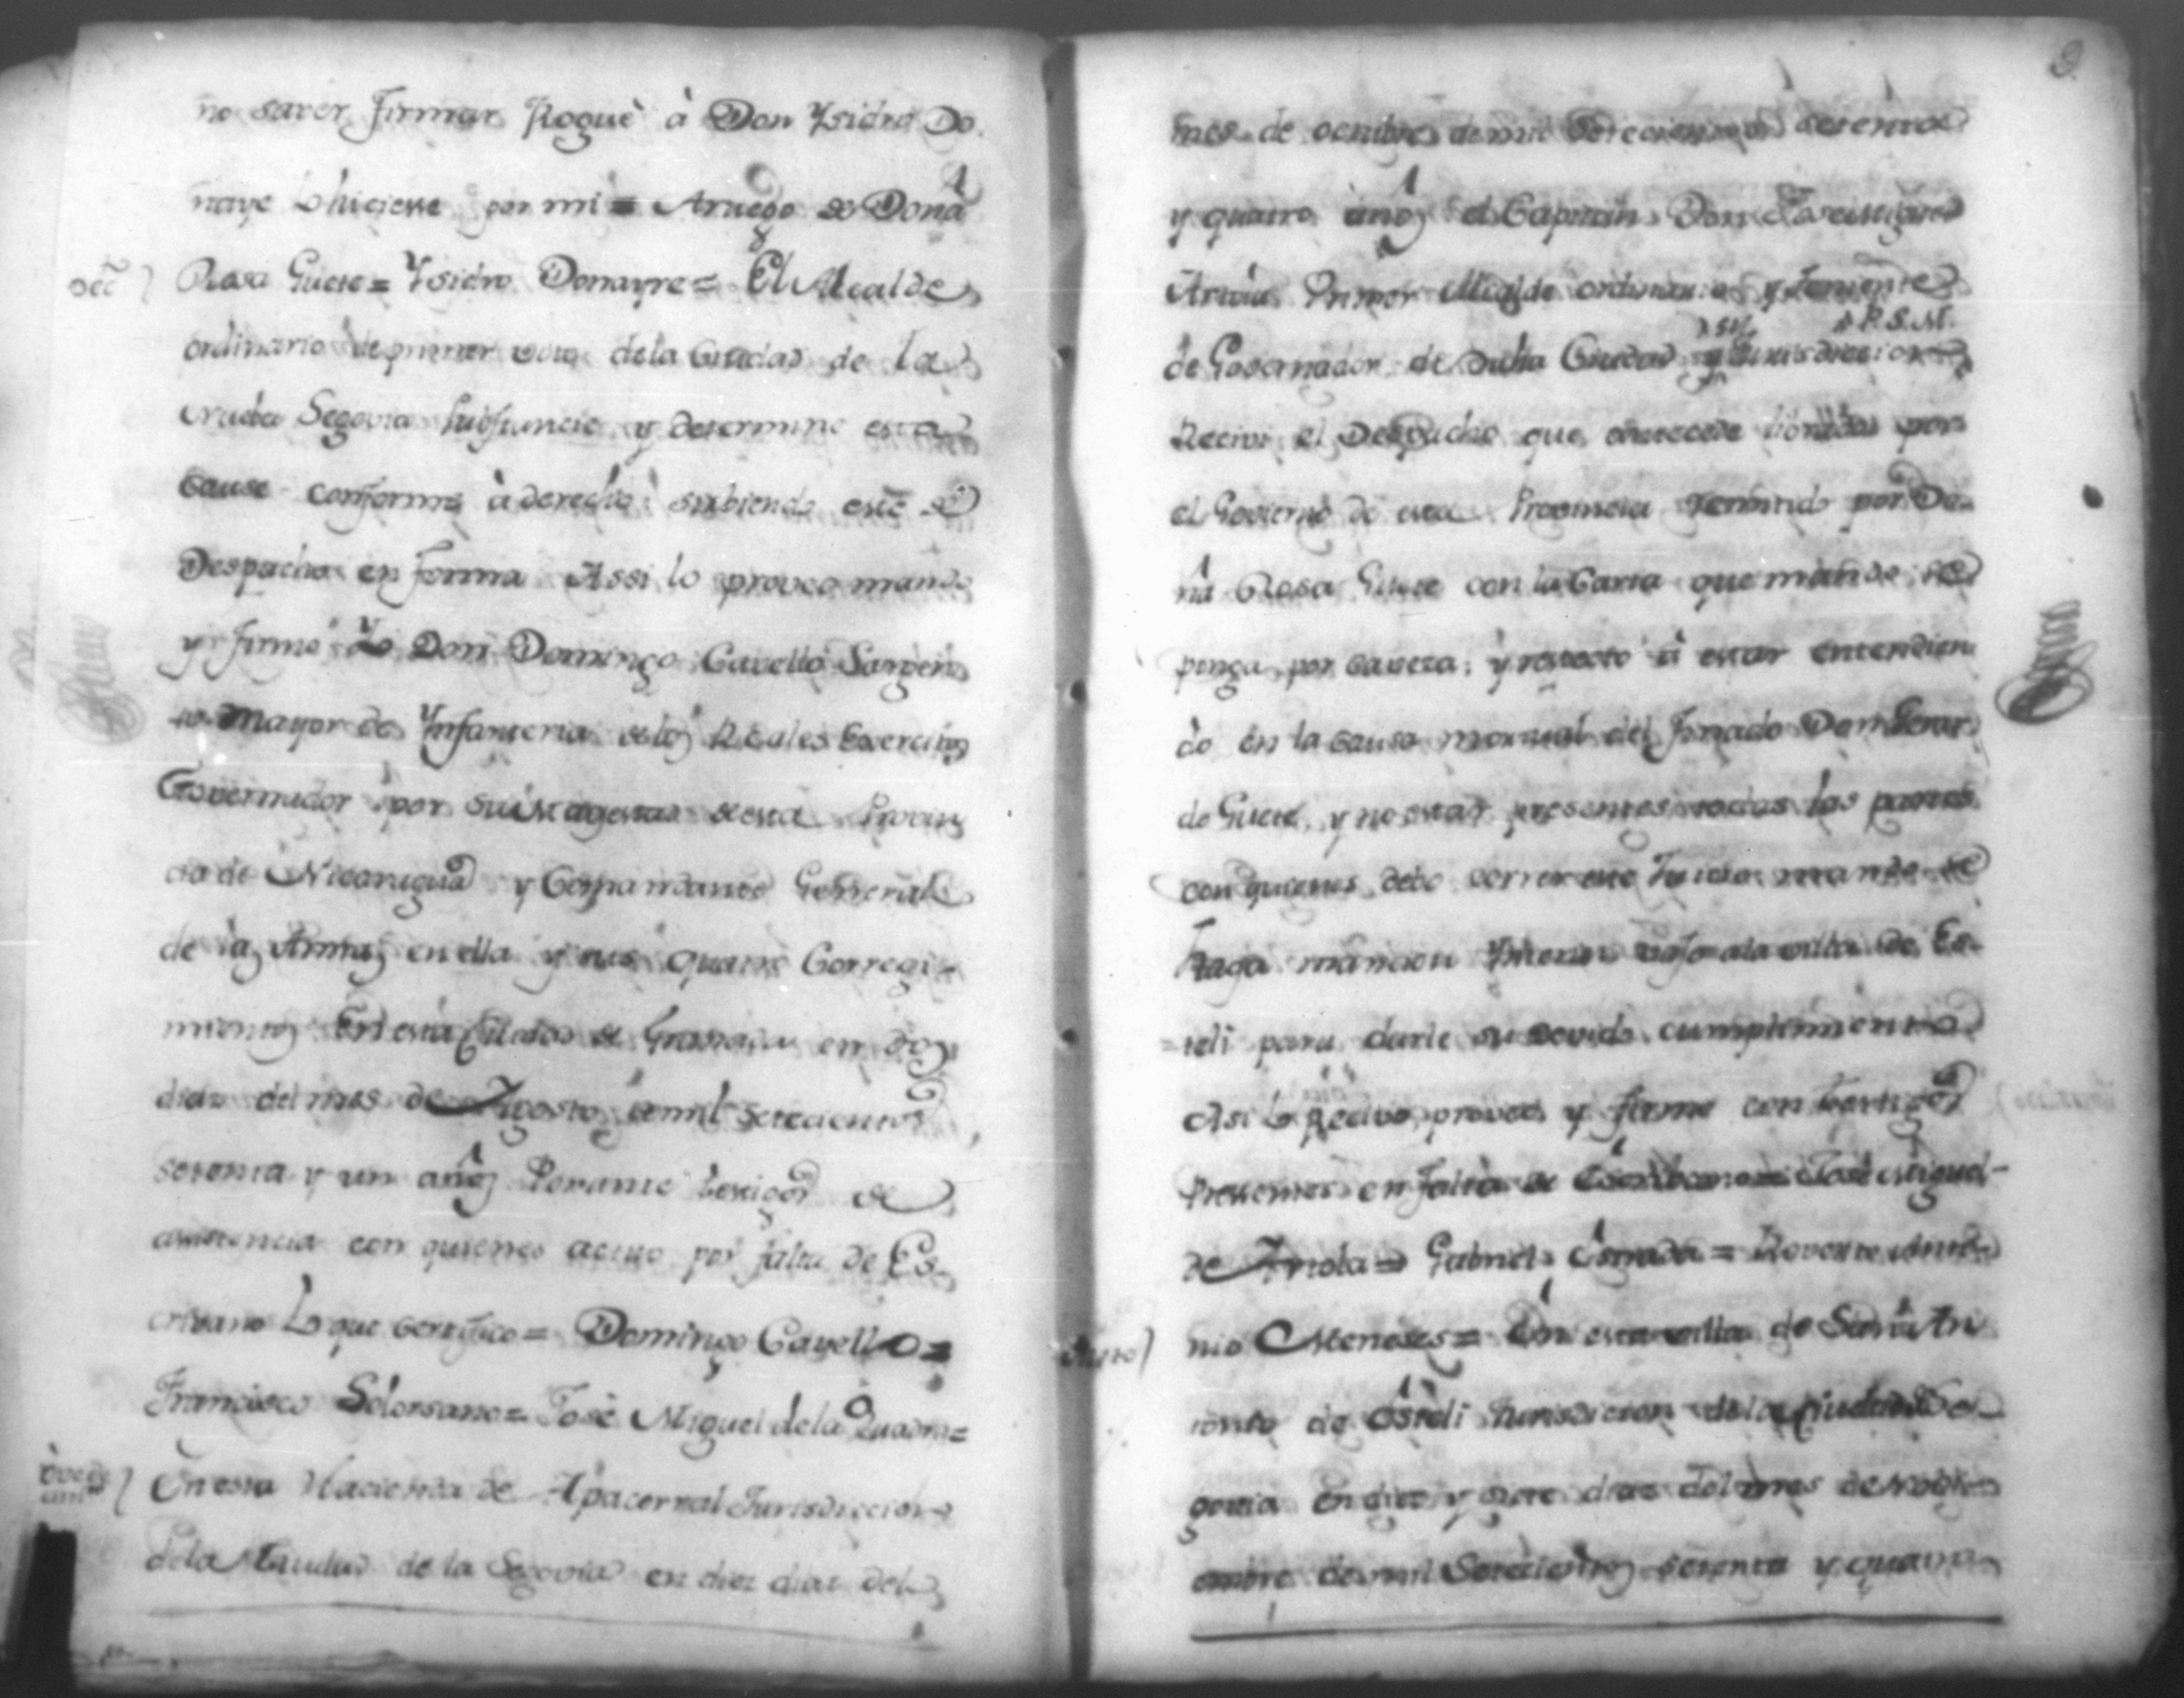 no saver firmar Roguè à Don Ysidro Do
naye lo hiciese por mi = Aruego de Doña
Decº) Rosa Guete = Ysidro Donayre = El Alcalde
ordinario de primer voto dela Ciudad de la
Nueba Segovia sustancie y determine esta
causa conforme à derecho sirbiendo este de
Despacho en forma Assi lo proveo mando
y firmo Yo Don Domingo Cavello Sargen
to Mayor de Ynfanteria delos Reales Exercitos
Governador por su Magestad de esta Provin
cia de Nicaragua y Comandante General
de las Armas en ella y sus quatro Corregi-
mientos En esta Ciudad de Granada en dos
dias del mes de Agosto demil setecientos
setenta y un años Por ante testigos de
asistencia con quienes actuo por falta de Es
crivano Lo que certifico = Domingo Cavello =
Francisco Solorsano = José Miguel dela Quadra =
En esta Hacienda de Apacernal Jurisdiccion
dela Ciudad de la Segovia en diez dias del
3.
mes de octubre de mil setecientos setenta
y quatro años el Capitan Don José Miguel
Primer Alcalde ordinario y Teniente
de Governador de dicha Ciudad y su Jurisdiccion P. S. M.
Recivi el Despacho que antecede librado por
el Govierno de esta Provincia remitido por Do
ña Rosa Guete con la Carta que mando se
ponga por caveza; y respecto à estar entendien
do en la causa mortual del finado Don Gerar
do Guete, y no estar presentes todas las partes
con quienes debe correr este Juicio mando se
haga mancion para ala villa de Es-
teli para darle su devido cumplimiento
Asi lo Recivo, proveo, y firmo con testigos
Presentes en falta de Escribano = José Miguel
de = Gabriel Estrada = Roverto Anto
nio Meneses = En esta villa de San An
tonio de Esteli Jurisdicion dela Ciudad Se
govia en diez y siete dias del mes de Novi
embre de mil Setecientos setenta y quatro